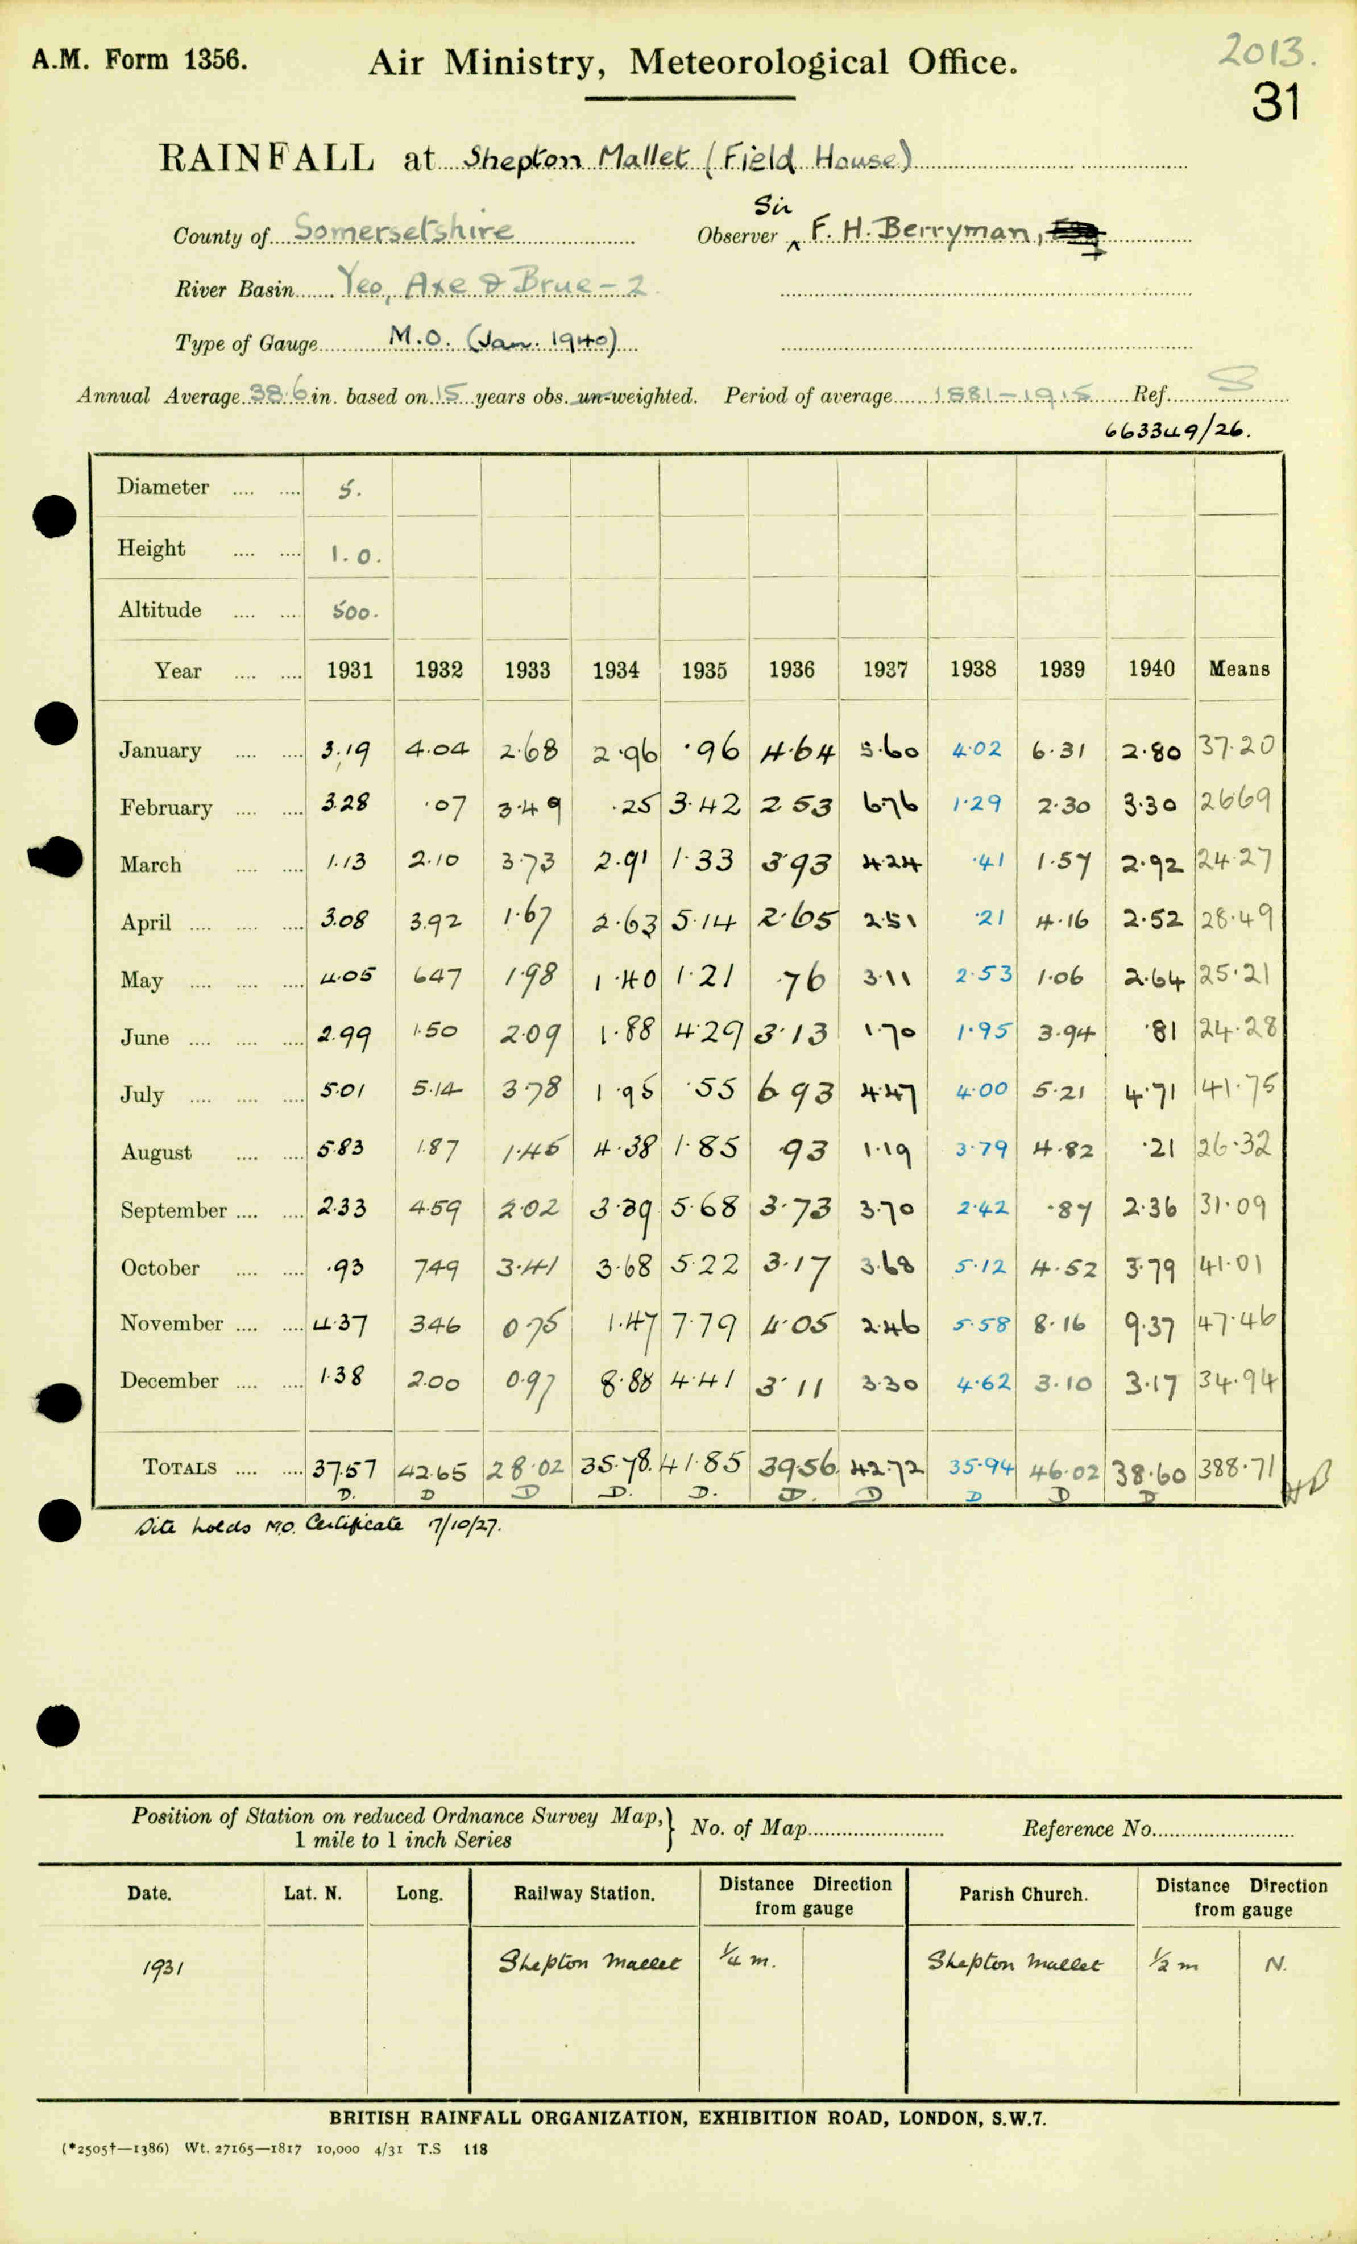 A.M. Form 1356.
Air Ministry, Meteorological Office.
2013.
31
RAINFALL at Shepton Mallet (Field House)
Sir
County of Somersetshire Observer ^ F. H. Berryman,
River Basin Yeo, Axe & Brue - 2
Type of Gauge M.O. (Jan. 1940)
Annual Average 38.6 in. based on 15 years obs. un-weighted. Period of average 1881-1915 Ref. S
663349/26.
Diameter 5.
Height 1.0.
Altitude 500.
Year 1931 1932 1933 1934 1935 1936 1937 1938 1939 1940 Means
January 3.19 4.04 2.68 2.96 .96 4.64 5.60 4.02 6.31 2.80 37.20
February 3.28 .07 3.49 .25 3.42 2 53 676 1.29 2.30 3.30 2669
March 1.13 2.10 3.73 2.91 1.33 3.93 4.24 .41 1.57 2.92 24.27
April 3.08 3.92 1.67 2.63 5.14 2.65 2.51 .21 4.16 2.52 28.49
May 4.05 647 1.98 1.40 1.21 .76 3.11 2.53 1.06 2.64 25.21
June 2.99 1.50 2.09 1.88 4.29 3.13 1.70 1.95 3.94 .81 24.28
July 5.01 5.14 3.78 1.95 .55 6 93 4.47 4.00 5.21 4.71 41.75
August 5.83 1.87 1.45 4.38 1.85 .93 1.19 3.79 4.82 .21 26.32
September 2.33 4.59 2.02 3.39 5.68 3.73 3.70 2.42 .87 2.36 31.09
October .93 749 3.41 3.68 5.22 3.17 3.68 5.12 4.52 3.79 41.01
November 4.37 346 0 75 1.47 7.79 4.05 2.46 5.58 8.16 9.37 47.46
December 1.38 2.00 0.97 8.88 4.41 3.11 3.30 4.62 3.10 3.17 34.94
TOTALS 37.57 42.65 28.02 35.78. 41.85 39.56 42.72 35.94 46.02 38.60 388.71
D. D D D. D. D. D D D D
Site holds M.O. Certificate 7/10/27.
Position of Station on reduced Ordnance Survey Map,} No. of Map Reference No.
1 mile to 1 inch Series
Date. Lat. N. Long. Railway Station. Distance Direction from gauge Parish Church. Distance Direction from gauge
1931 Shepton Mallet ¼ m. Shepton Mallet ½ m N.
BRITISH RAINFALL ORGANIZATION, EXHIBITION ROAD, LONDON, S.W.7.
(*2505†—1386) Wt. 27165—1817 10,000 4/31 T.S 118